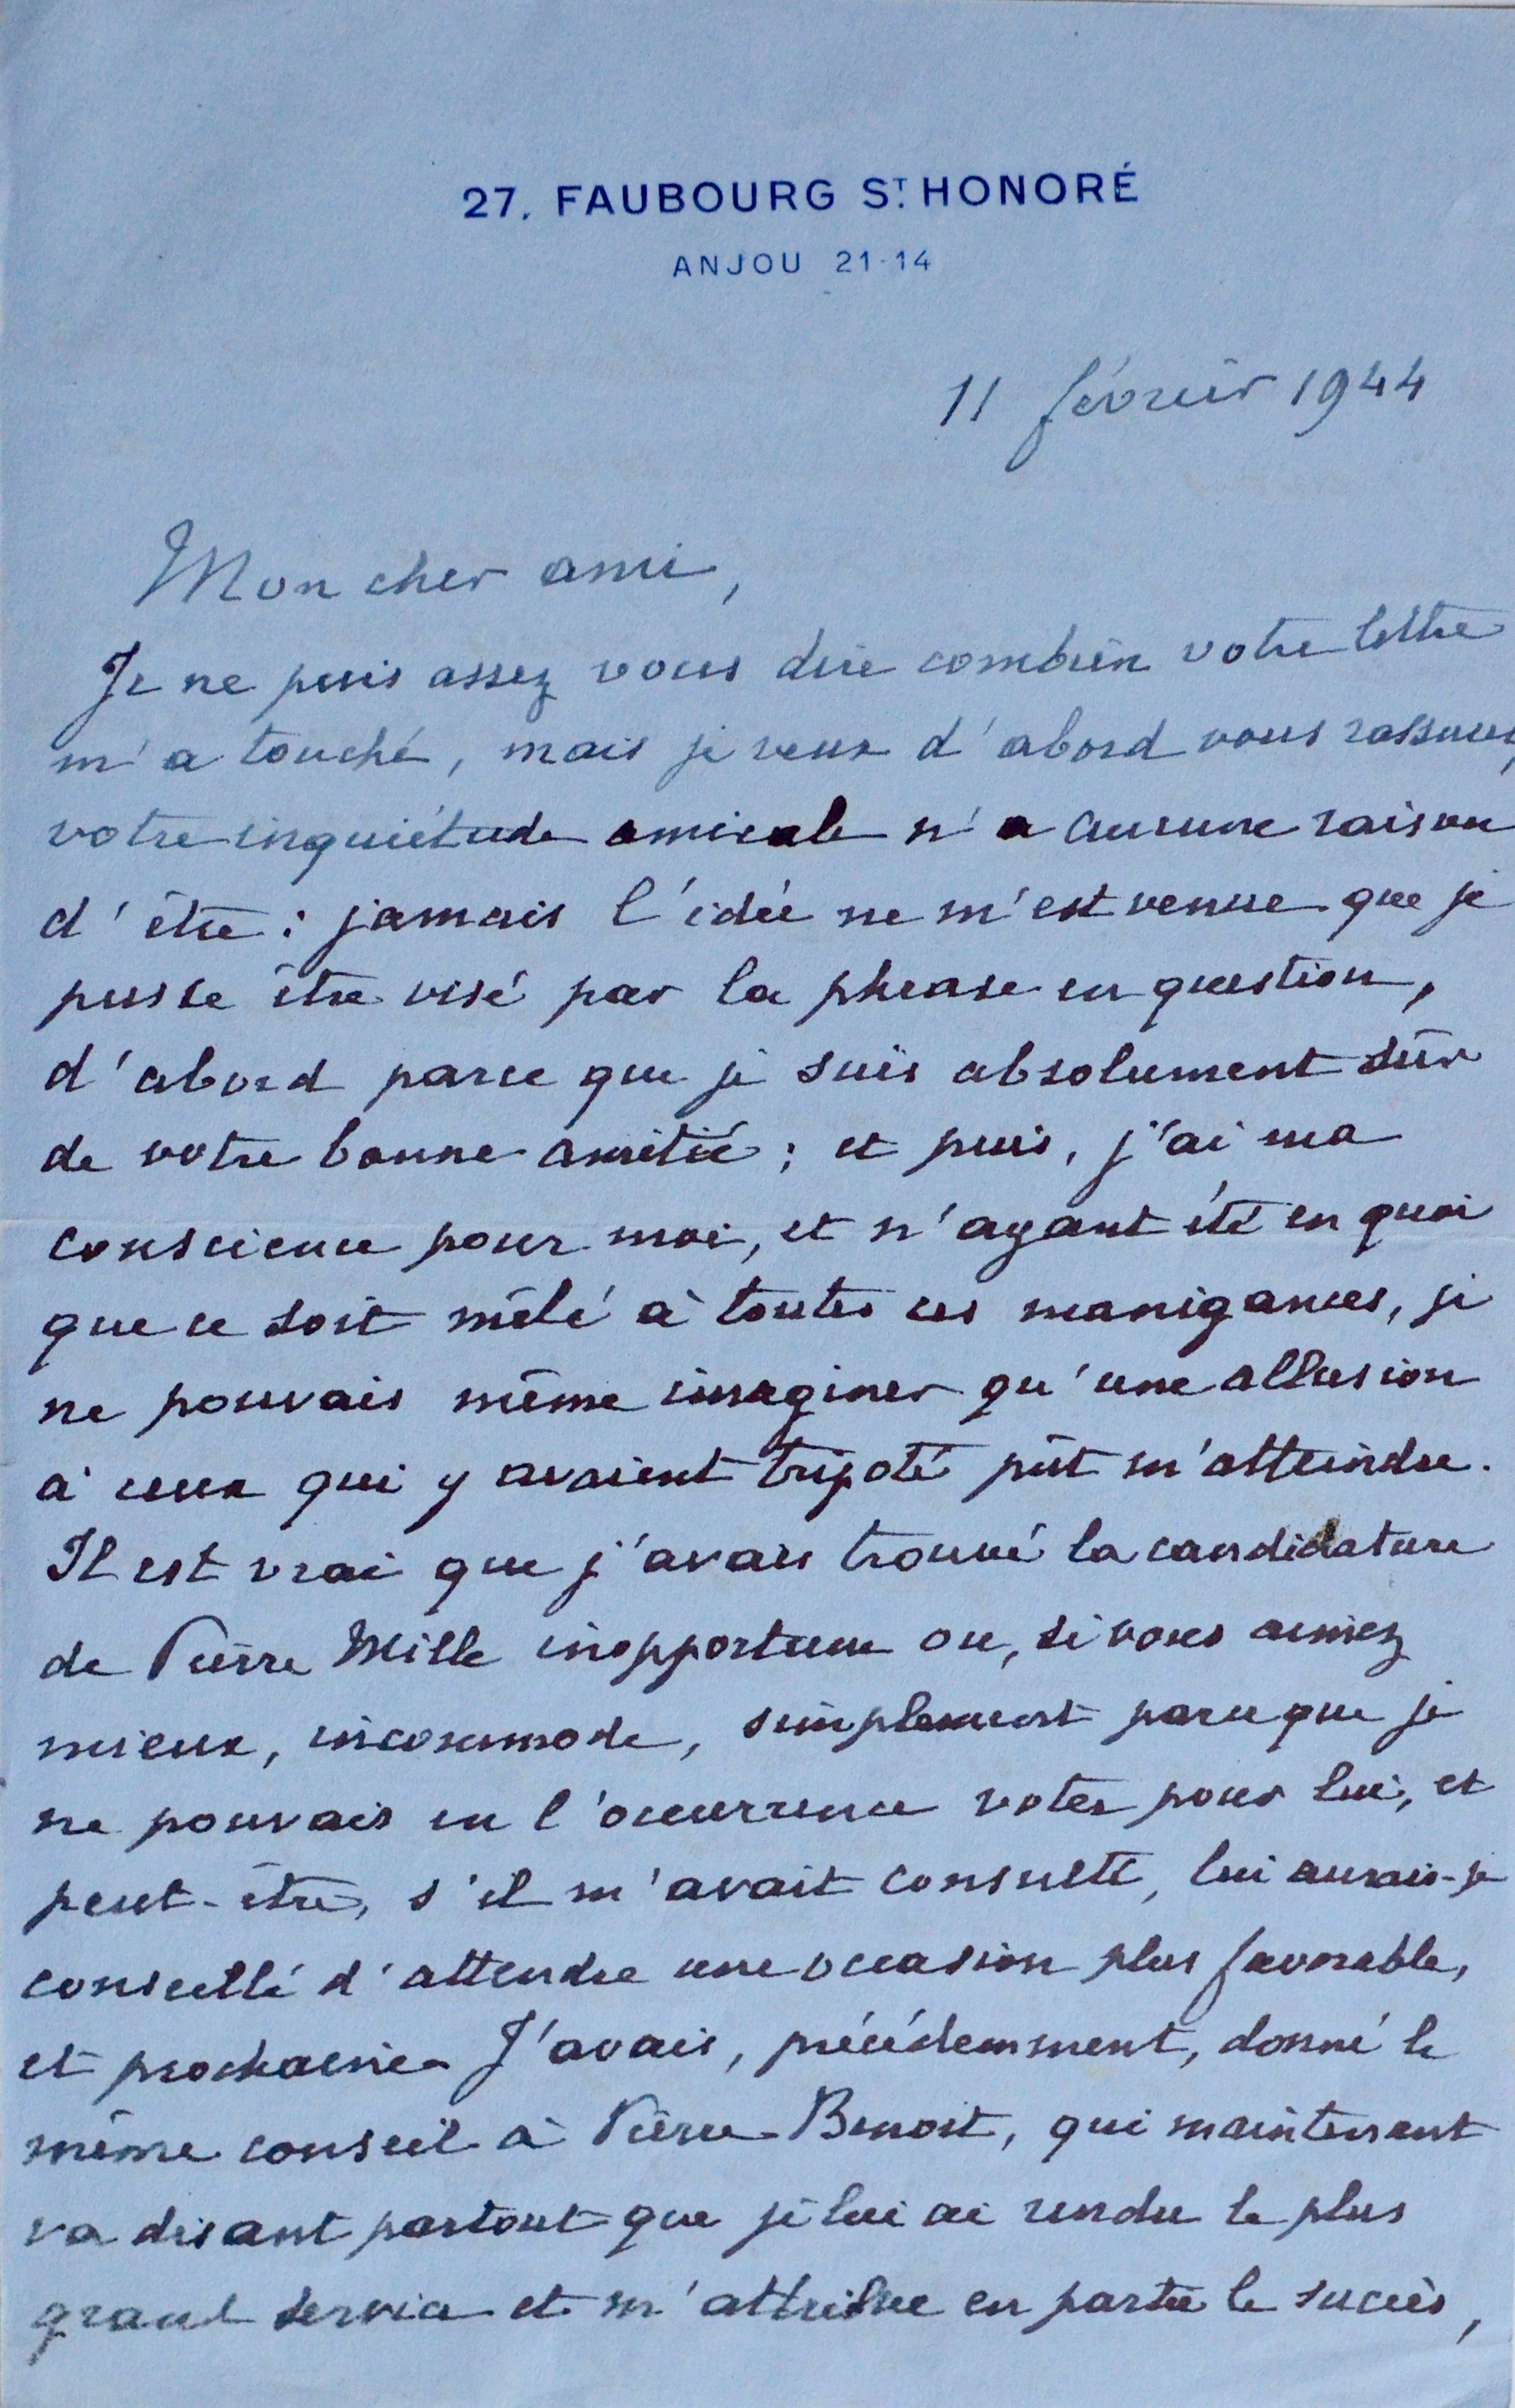 27. FAUBOURG ST. HONORÉ
ANJOU 21-14
11 février 1944
Mon cher ami,
Je ne puis assez vous dire combien votre lettre
m'a touché, mais je veux d'abord vous rassurer,
votre inquiétude amicale n'a aucune raison
d'être : jamais l'idée ne m'est venue que je
pusse être visé par la phrase en question,
d'abord parce que je suis absolument sûr
de votre bonne amitié ; et puis, j'ai ma
conscience pour moi, et n'ayant été en quoi
que ce soit mêlé à toutes ces manigances, je
ne pouvais même imaginer qu'une allusion
à ceux qui y avaient tripoté pût m'atteindre.
Il est vrai que j'avais trouvé la candidature
de Pierre Mille inopportune ou, si vous aimez
mieux, incommode, simplement parce que je
ne pouvais en l'occurrence voter pour lui, et
peut-être, s'il m'avait consulté, lui aurais-je
conseillé d'attendre une occasion plus favorable,
et prochaine. J'avais, précédemment, donné le
même conseil à Pierre Benoit, qui maintenant
va disant partout que je lui ai rendu le plus
grand service et m'attribue en partie le succès,